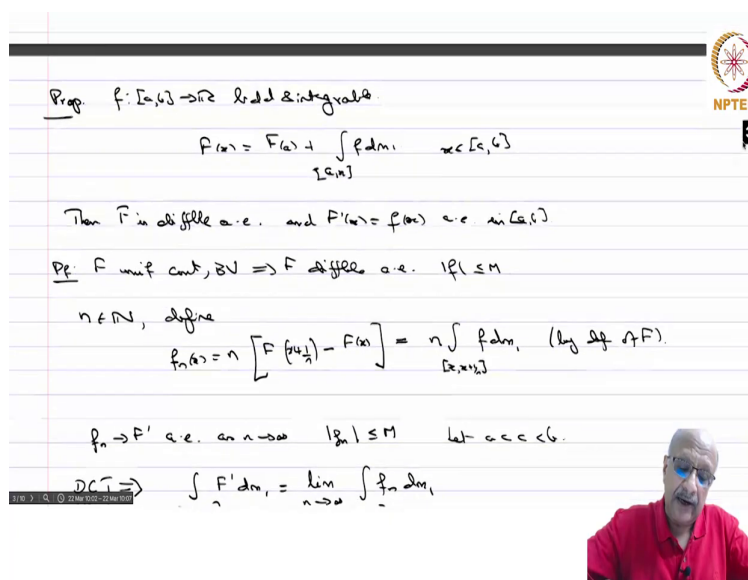 Prop. f: [a,b] → ℝ bdd & integrable.
F(x) = F(a) + ∫_{[a,x]} f dm₁ x ∈ [a,b]
Then F is diffble a.e. and F'(x) = f(x) a.e. in [a,b]
Pf: F unif cont, BV ⟹ F diffble a.e. |f| ≤ M
n ∈ ℕ, define
f_n(x) = n [F(x+1/n) - F(x)] = n ∫_{[x,x+1/n]} f dm₁ (by def of F).
f_n → F' a.e. as n→∞ |f_n| ≤ M Let a<c<b.
DCT ⟹ ∫ F' dm₁ = lim_{n→∞} ∫ f_n dm₁
3/10 22 Mar 10:02 - 22 Mar 10:07
NPTE